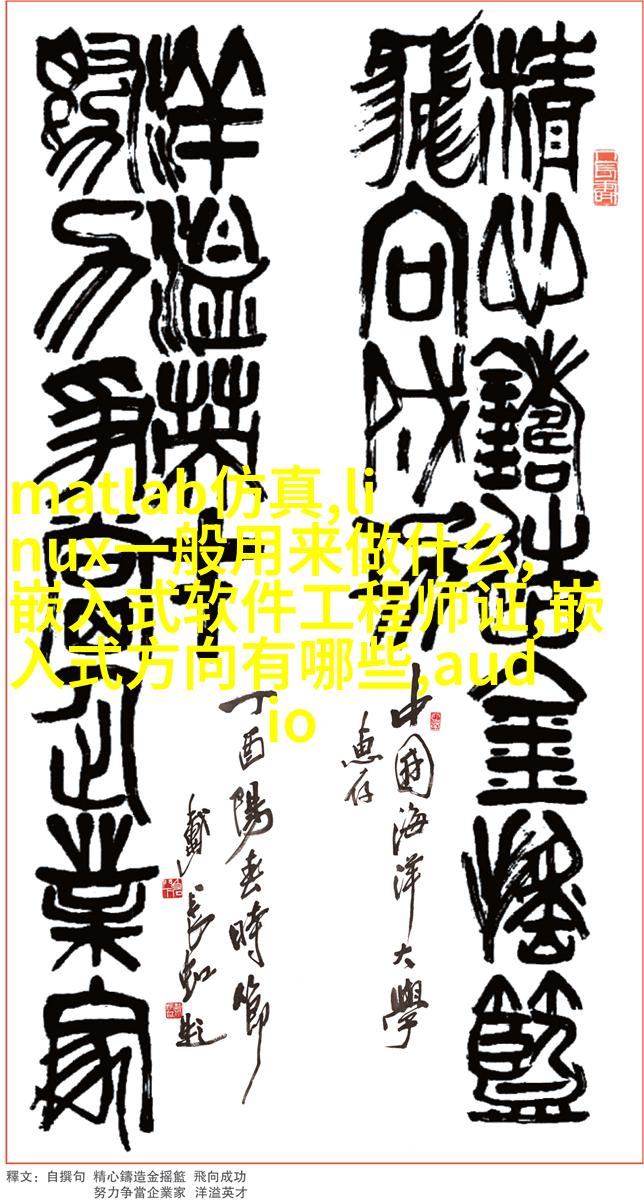 精心鑄造金摇籃
飛向成功
中國海洋大學
惠存
洋溢英才
努力争當企業家
丁酉陽春時節
戴長虹題
matlab仿真,li
nux一般用来做什么,
嵌入式软件工程师证,嵌
入式方向有哪些,aud
io
釋文：自撰句 精心鑄造金摇籃 飛向成功
努力争當企業家 洋溢英才